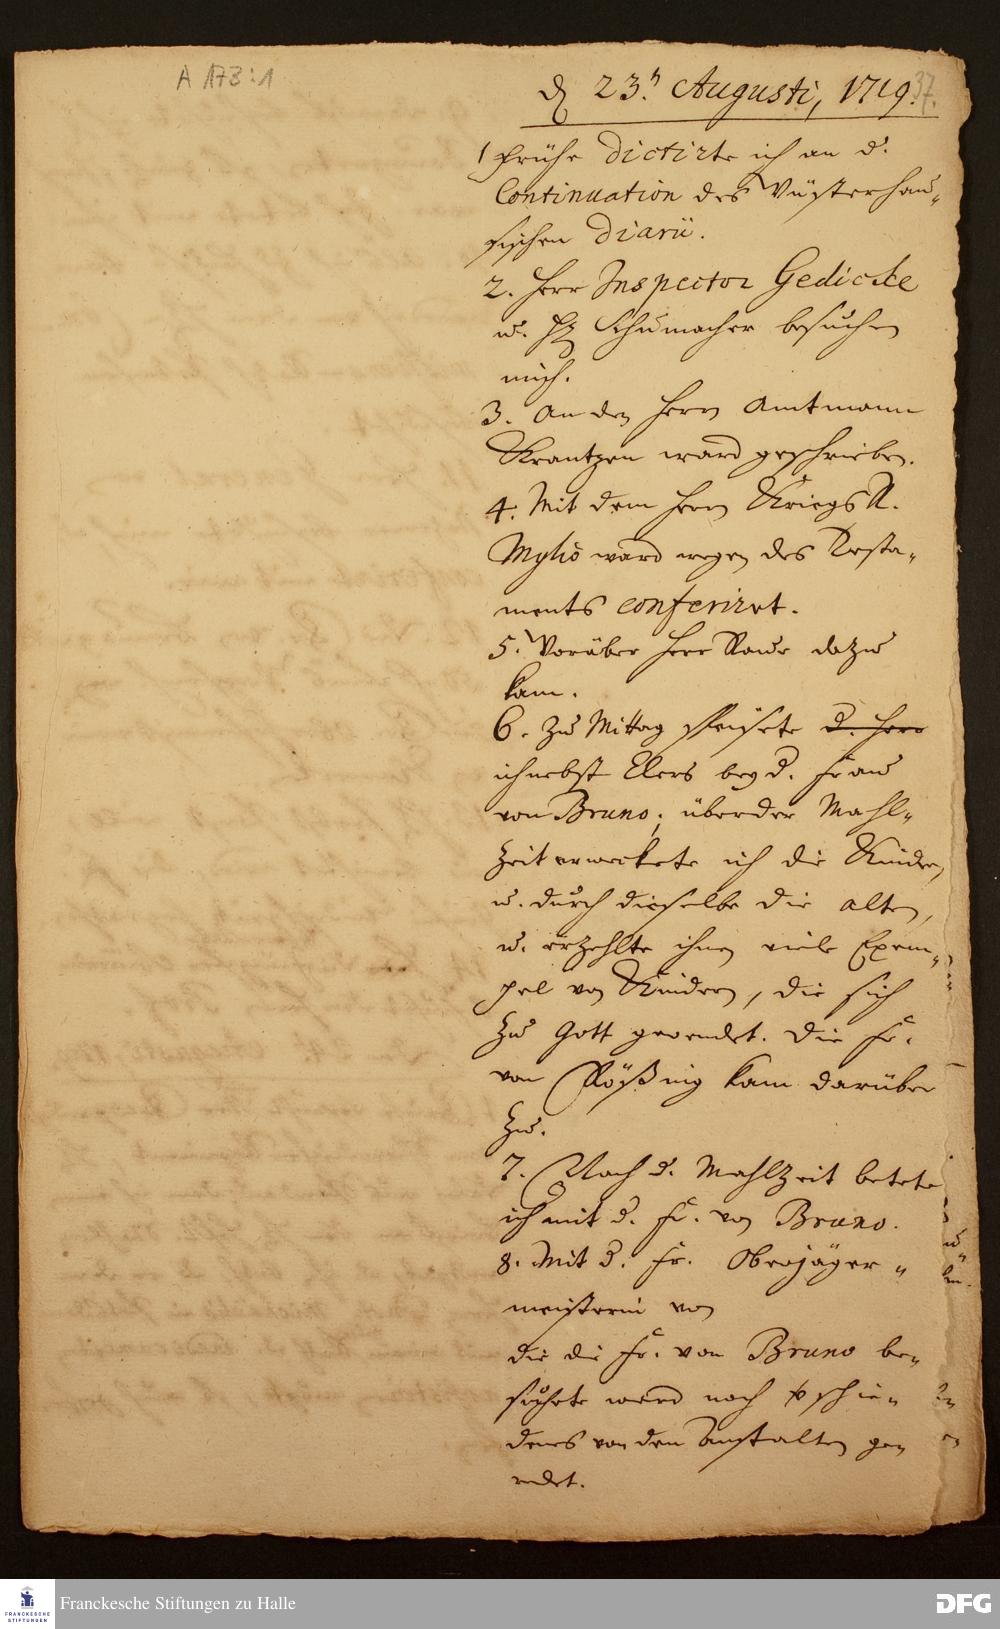 A 173:1
37.
d 23.n Augusti, 1719.
1 frühe dictirte ich an d.
Continuation des Wüsterhau„
sischen Diarii.
2. Herr Inspector Gedicke
u. H Schumacher besuchen
mich.
3. An den Herrn Amtmann
Krantzen ward geschrieben.
4. Mit dem Herrn KriegsR.
Mylio ward wegen des Testa„
ments conferiret.
5. Worüber Herr Raue dazu
kam.
6. Zu Mittag speisete d. Herr
ich nebst Elers bey d. Frau
von Bruno; über der Mahl„
zeit erweckete ich die Kinder,
u. durch dieselbe die alten,
u. erzehlte ihnen viele Exem„
pel von Kindern, die sich
zu Gott gewendet. Die Fr.
von Plößnig kam darüber
zu.
7. Nach d. Mahlzeit betete
ich mit d. Fr. von Bruno.
8. Mit d. Fr. Oberjäger„
meisterin von
die die Fr. von Bruno be„
suchete ward noch verschie„
denes von den Anstalten ge„
redet.
FRANCKESCHE
STIFTUNGEN
Franckesche Stiftungen zu Halle
DFG